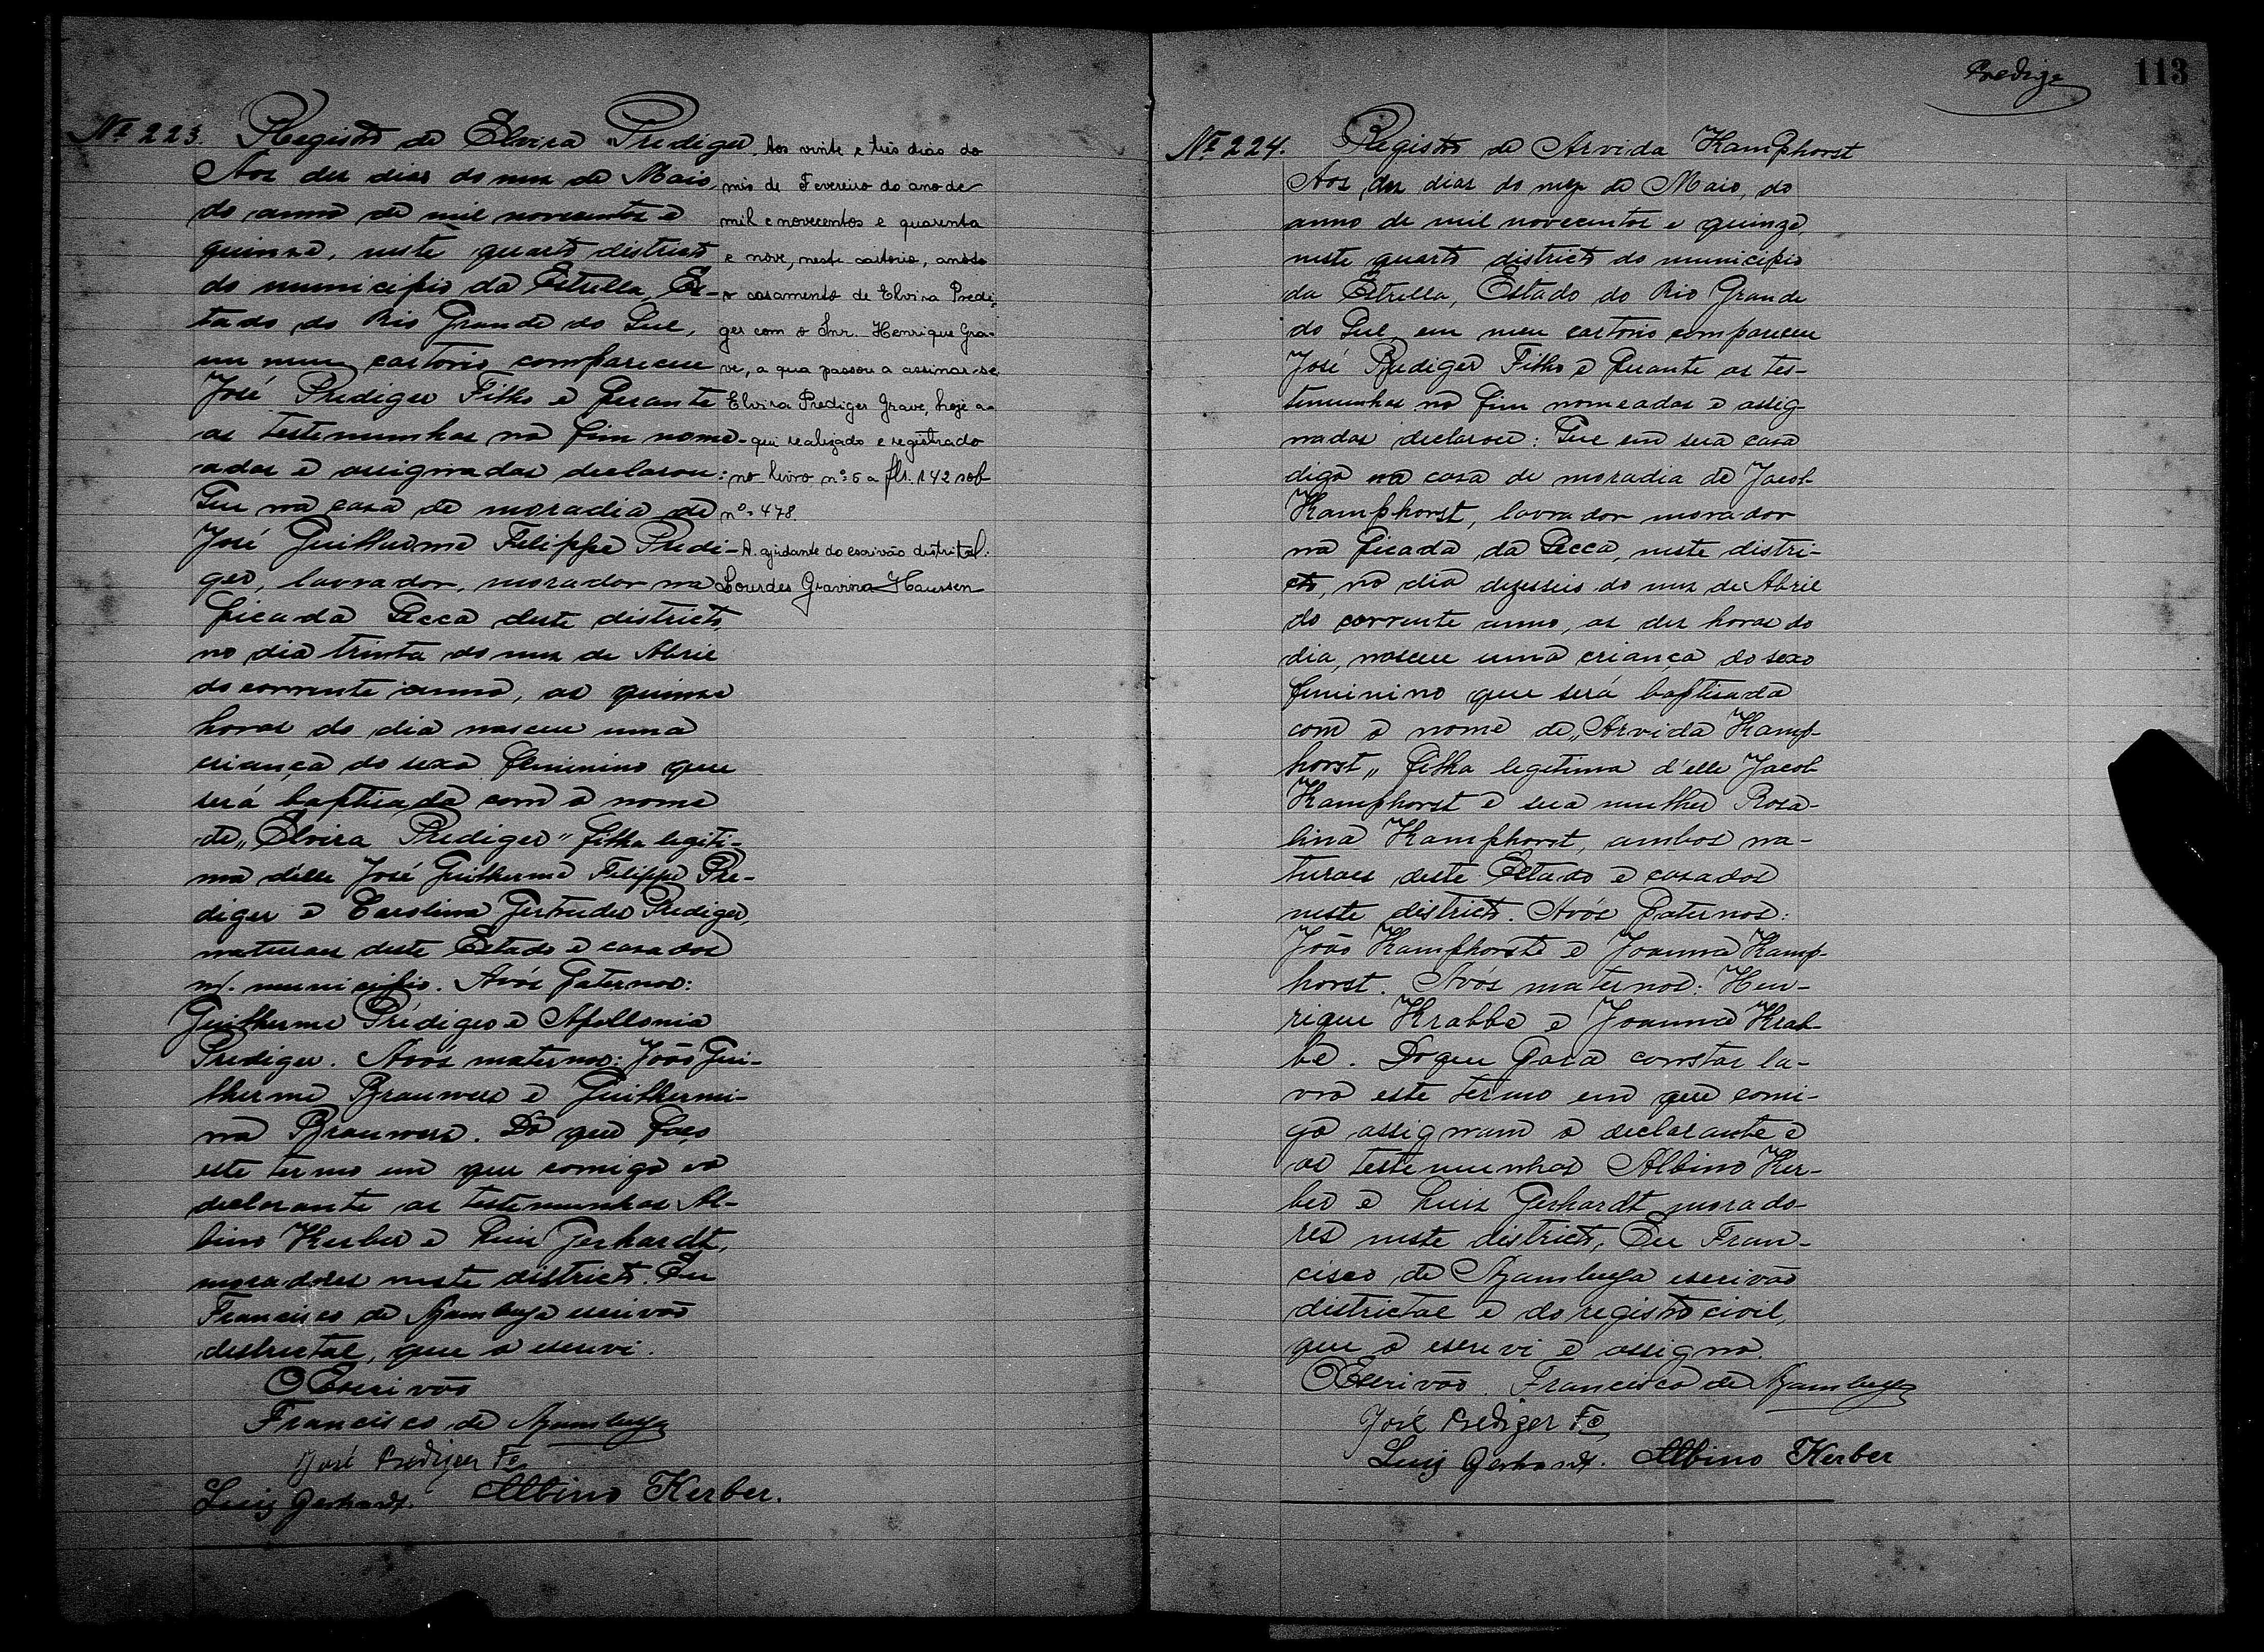 Nº 223. Registro de Elvira Prediger
Aos dez dias do mez de Maio,
do anno de mil novecentos e
quinze, neste quarto districto
do municipio da Estrella, Es-
tado do Rio Grande do Sul,
em meu cartorio compareceu
José Prediger Filho e perante
as testemunhas no fim nome-
adas e assignadas declarou:
Que na casa de moradia de
José Guilherme Filippe Predi-
ger, lavrador, morador na
picada Secca deste districto,
no dia trinta do mez de Abril
do corrente anno, as quinze
horas do dia nasceu uma
criança do sexo feminino que
será baptisada com o nome
de „Elvira Prediger" filha legiti-
ma d'elle José Guilherme Filippe Pre-
diger e Carolina Gertrudes Prediger,
naturaes deste Estado e casados
n/. municipio. Avós paternos:
Guilherme Prediger e Apollonia
Prediger. Avós maternos: João Gui-
lherme Brauwers e Guilhermi-
na Brauwers. Do que faço
este termo em que comigo vo
declarante as testemunhas Al-
bino Kerber e Luis Gerhardt,
moradores neste districto. Eu
Francisco de Azambuja escrivão
districtal, que o escrevi.
O Escrivão
Francisco de Azambuja
José Prediger Fo
Luiz Gerhardt. Albino Kerber.
Aos vinte e três dias do
mês de Fevereiro do ano de
mil e novecentos e quarenta
e nove, neste cartorio, anoto
o casamento de Elvira Predi-
ger com o Snr. Henrique Gra-
ve, a qua passou a assinar-se
Elvira Prediger Grave, hoje a-
qui realizado e registrado
no livro nº 5 a fls. 142 sob
nº 478.
A ajudante do escrivão distrital.
Lourdes Gravina Haussen
Predige
113
Nº 224. Registro de Arvida Kamphorst
Aos dez dias do mez de Maio, do
anno de mil novecentos e quinze,
neste quarto districto do municipio
da Estrella, Estado do Rio Grande
do Sul, em meu cartorio compareceu
José Prediger Filho e perante as tes-
temunhas no fim nomeadas e assig-
nadas declarou: Que em sua casa
digo na casa de moradia de Jacob
Kamphorst, lavrador morador
na picada da Secca, neste distri-
cto, no dia dezesseis do mez de Abril
do corrente anno, as dez horas do
dia, nasceu uma criança do sexo
feminino que será baptisada
com o nome de „Arvida Kamp-
horst„ filha legitima d'elle Jacob
Kamphorst e sua mulher Rosa-
lina Kamphorst, ambos na-
turaes deste Estado e casados
neste districto. Avós paternos:
João Kamphorste e Joanna Kamp-
horst. Avós maternos: Hen-
rique Krabbe e Joanna Krab-
be. Do que para constar la-
vro este termo em que comi-
go assignam o declarante e
as testemunhas Albino Ker-
ber e Luis Gerhardt morado-
res neste districto, Eu Fran-
cisco de Azambuja escrivão
districtal e do registro civil,
que o escrevi e assigno.
O Escrivão. Francisco de Azambuja
José Prediger Fo
Luiz Gerhardt. Albino Kerber